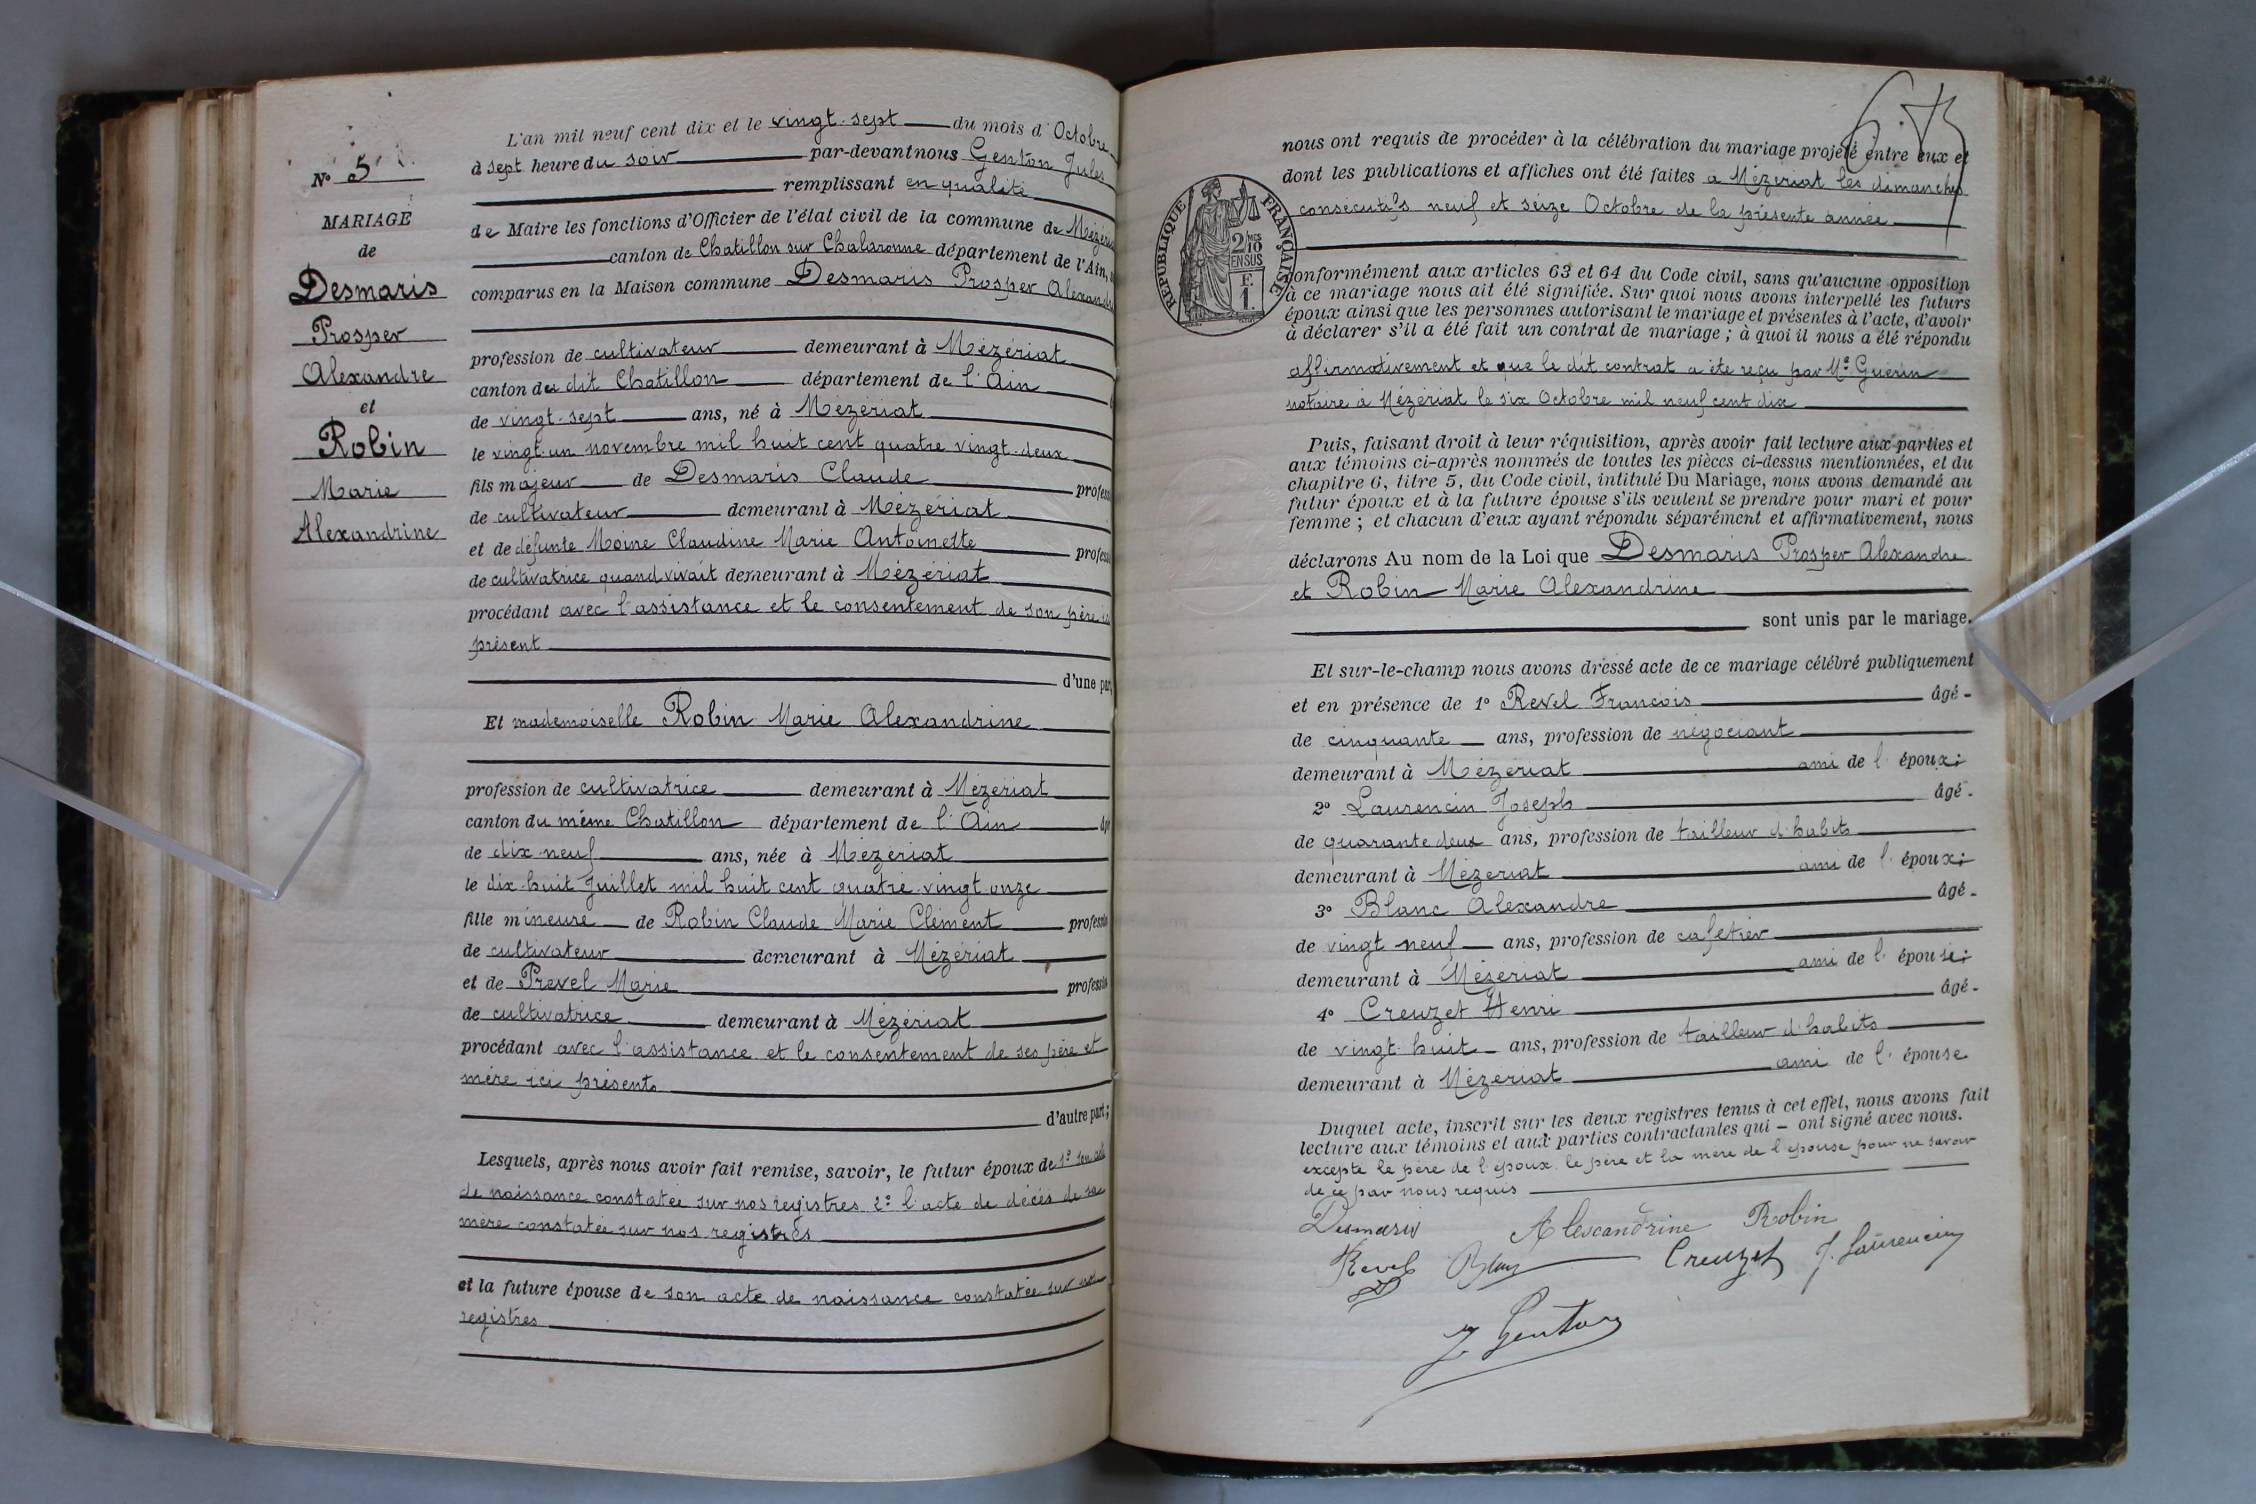 N° 5
MARIAGE
de
Desmaris
Prosper
Alexandre
et
Robin
Marie
Alexandrine
L'an mil neuf cent dix et le vingt-sept du mois d'Octobre
à sept heure du soir par-devant nous Genton Jules
remplissant en qualité
de Maire les fonctions d'Officier de l'état civil de la commune de
canton de Chatillon sur Chalaronne département de l'Ain,
comparus en la Maison commune Desmaris Prosper
profession de cultivateur demeurant à Mézériat
canton du dit Chatillon département de l'Ain
de vingt-sept ans, né à Mézériat
le vingt-un novembre mil huit cent quatre vingt-deux
fils majeur de Desmaris Claude
de cultivateur demeurant à Mézériat
et de défunte Moine Claudine Marie Antoinette
de cultivatrice quand vivait demeurant à Mézériat
procédant avec l'assistance et le consentement de son père
présent
d'une part,
Et mademoiselle Robin Marie Alexandrine
profession de cultivatrice demeurant à Mézériat
canton du même Chatillon département de l'Ain
de dix neuf ans, née à Mézériat
le dix-huit Juillet mil huit cent quatre-vingt-onze
fille mineure de Robin Claude Marie Clément
de cultivateur demeurant à Mézériat
et de Prevel Marie
de cultivatrice demeurant à Mézériat
procédant avec l'assistance et le consentement de ses père et
mère ici présents
d'autre part;
Lesquels, après nous avoir fait remise, savoir, le futur époux de 1° son
de naissance constatée sur nos registres 2° l'acte de décès de sa
mère constatée sur nos registres
et la future épouse de son acte de naissance constatée sur nos
registres
nous ont requis de procéder à la célébration du mariage projeté entre eux et
dont les publications et affiches ont été faites à Mézériat les dimanches
consécutifs neuf et seize Octobre de la présente année
RÉPUBLIQUE FRANÇAISE
2/10 MES
EN SUS
F.
1.
conformément aux articles 63 et 64 du Code civil, sans qu'aucune opposition
à ce mariage nous ait été signifiée. Sur quoi nous avons interpellé les futurs
époux ainsi que les personnes autorisant le mariage et présentes à l'acte, d'avoir
à déclarer s'il a été fait un contrat de mariage ; à quoi il nous a été répondu
affirmativement et que le dit contrat a été reçu par Me Guérin
notaire à Mézériat le six Octobre mil neuf cent dix
Puis, faisant droit à leur réquisition, après avoir fait lecture aux parties et
aux témoins ci-après nommés de toutes les pièces ci-dessus mentionnées, et du
chapitre 6, titre 5, du Code civil, intitulé Du Mariage, nous avons demandé au
futur époux et à la future épouse s'ils veulent se prendre pour mari et pour
femme ; et chacun d'eux ayant répondu séparément et affirmativement, nous
déclarons Au nom de la Loi que Desmaris Prosper Alexandre
et Robin Marie Alexandrine
sont unis par le mariage.
Et sur-le-champ nous avons dressé acte de ce mariage célébré publiquement
et en présence de 1° Revel Francois âgé-
de cinquante ans, profession de négociant
demeurant à Mézériat ami de l'époux;
2° Laurencin Joseph âgé-
de quarante deux ans, profession de tailleur d'habits
demeurant à Mézériat ami de l'époux;
3° Blanc Alexandre âgé-
de vingt neuf ans, profession de cafetier
demeurant à Mézériat ami de l'épouse;
4° Creuzet Henri âgé-
de vingt huit ans, profession de tailleur d'habits
demeurant à Mézériat ami de l'épouse
Duquel acte, inscrit sur les deux registres tenus à cet effet, nous avons fait
lecture aux témoins et aux parties contractantes qui - ont signé avec nous.
excepté le père de l'époux le père et la mère de l'épouse pour ne savoir
de ce par nous requis
Desmaris Alescandrine Robin
Revel Blanc Creuzet J. Laurencin
J. Genton